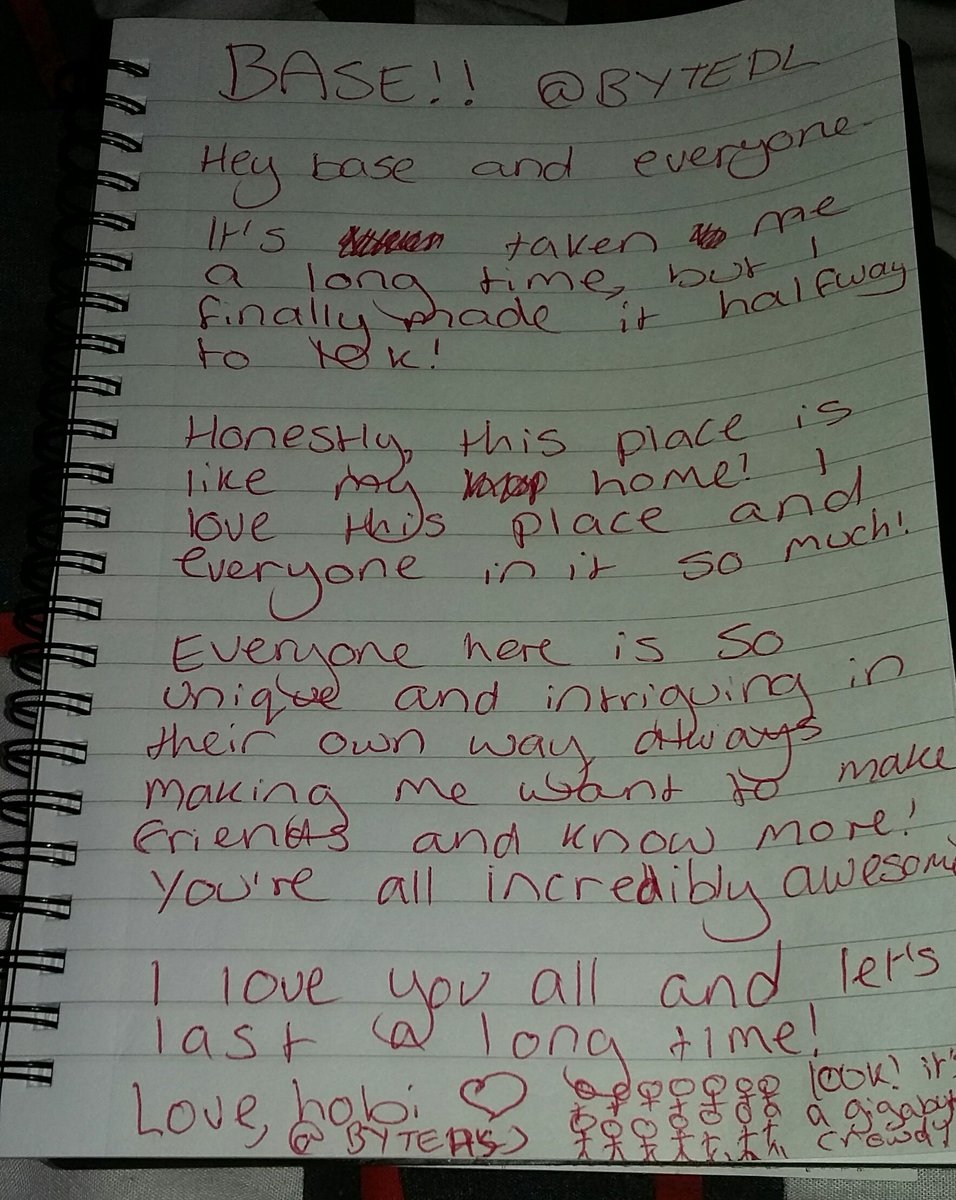 BASE!! @BYTEDL
Hey base and everyone-
It's taken me
a long time, but I
finally made it halfway
to 10k!
Honestly, this place is
like my home! I
love this place and
everyone in it so much!
Everyone here is so
unique and intriguing in
their own way, always
making me want to make
friends and know more!
You're all incredibly awesom
I love you all and let's
last a long time!
Love, hobi ♡ look! it's
a gigabyt
@BYTEHS crowdy